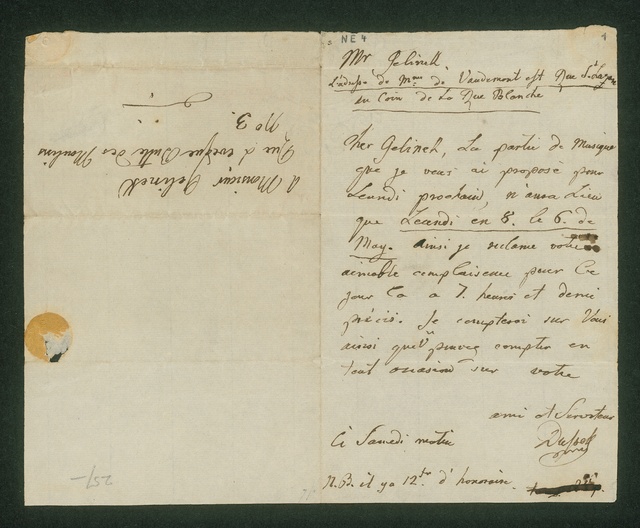 NE 4
Mr Gelineck
L'adresse de Mme de Vaudemont est Rue St Lazare
au Coin de La Rue Blanche
Cher Gelineck, La partie de Musique
que je vous ai proposé pour
Lundi prochain, n'aura Lieu
que Lundi en 8. le 6. de
May. ainsi je reclame votre
aimable complaisence pour Ce
jour la a 7. heures et demi
précis. Je compterai sur Vous
aussi que pouvez compter en
tout occasion sur votre
ami et Serviteur
Dussek
Ce Samedi matin
N.B. il y a 12 d'honoraire.
A Monsieur Gelineck
Rue L'eveque Butte des Moulins
No 3.
25/-